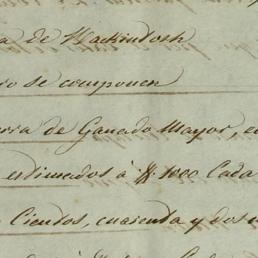 a de Mackintosh
ro se componen
erra de Ganado Mayor, e
estimados á $. 1000 Cada
Cientos, cuarenta y dos